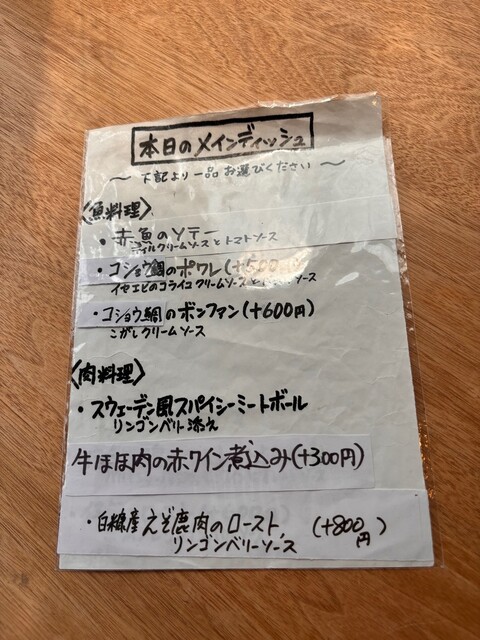 本日のメインディッシュ
～ 下記より一品お選びください ～
〈魚料理〉
・赤魚のソテー
ディルクリームソースとトマトソース
・コショウ鯛のポワレ(+500円)
イセエビのコライユクリームソースと ソース
・コショウ鯛のボンファン(+600円)
こがしクリームソース
〈肉料理〉
・スウェーデン風スパイシーミートボール
リンゴンベリー添え
牛ほほ肉の赤ワイン煮込み(+300円)
・白糠産えぞ鹿肉のロースト (+800円)
リンゴンベリーソース